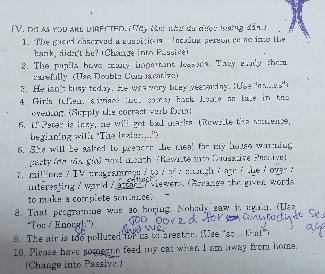 IV. DO AS YOU ARE DIRECTED.
1. The guard observed a suspicious - looking person come into the
bank, didn't he? (Change into Passive)
2. The pupils have many important lessons. They study them
carefully. (Use Double Comparative)
3. He isn't busy today. He was very busy yesterday. (Use "so...as")
4. Girls (often, advise) (not, come) back home so late in the
evening. (Supply the correct verb form)
5. If Peter is lazy, he will get bad marks. (Rewrite the sentence,
beginning with "The lazier....")
6. She will be asked to prepare the meal for my house warming
party next month. (Rewrite into Causative Passive)
7. millions / TV programmes / to / of / enough / are / the / over /
interesting / world / attract / viewers. (Arrange the given words
to make a complete sentence.
8. That programme was so boring. Nobody saw it again. (Use
Too / Enough") too for anybody to see
9. The air is too polluted for us to breathe. (Use "so... that")
10. Please have someone feed my cat when I am away from home.
(Change into Passive.)